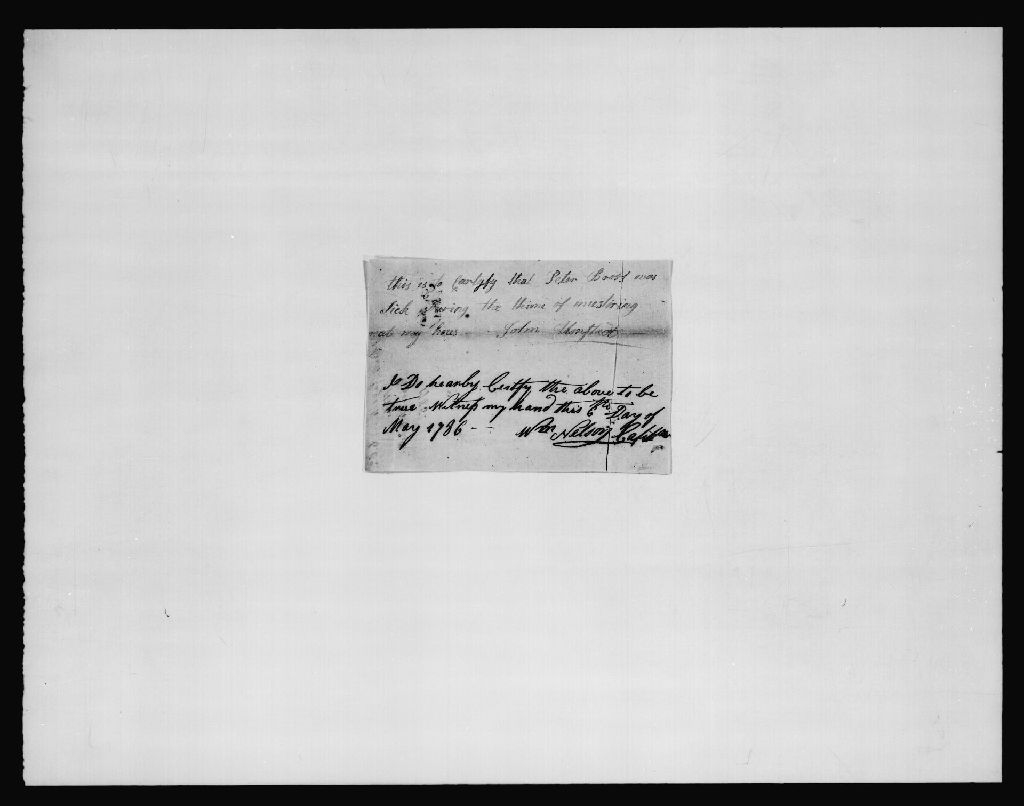 this is to Cartyfy that Peter
Sick During the thime of mustring
my hous John
I Do hearby Certfy the above to be
true Witness my hand this 6th Day of
May 1786 - - Wm Nelson Captn